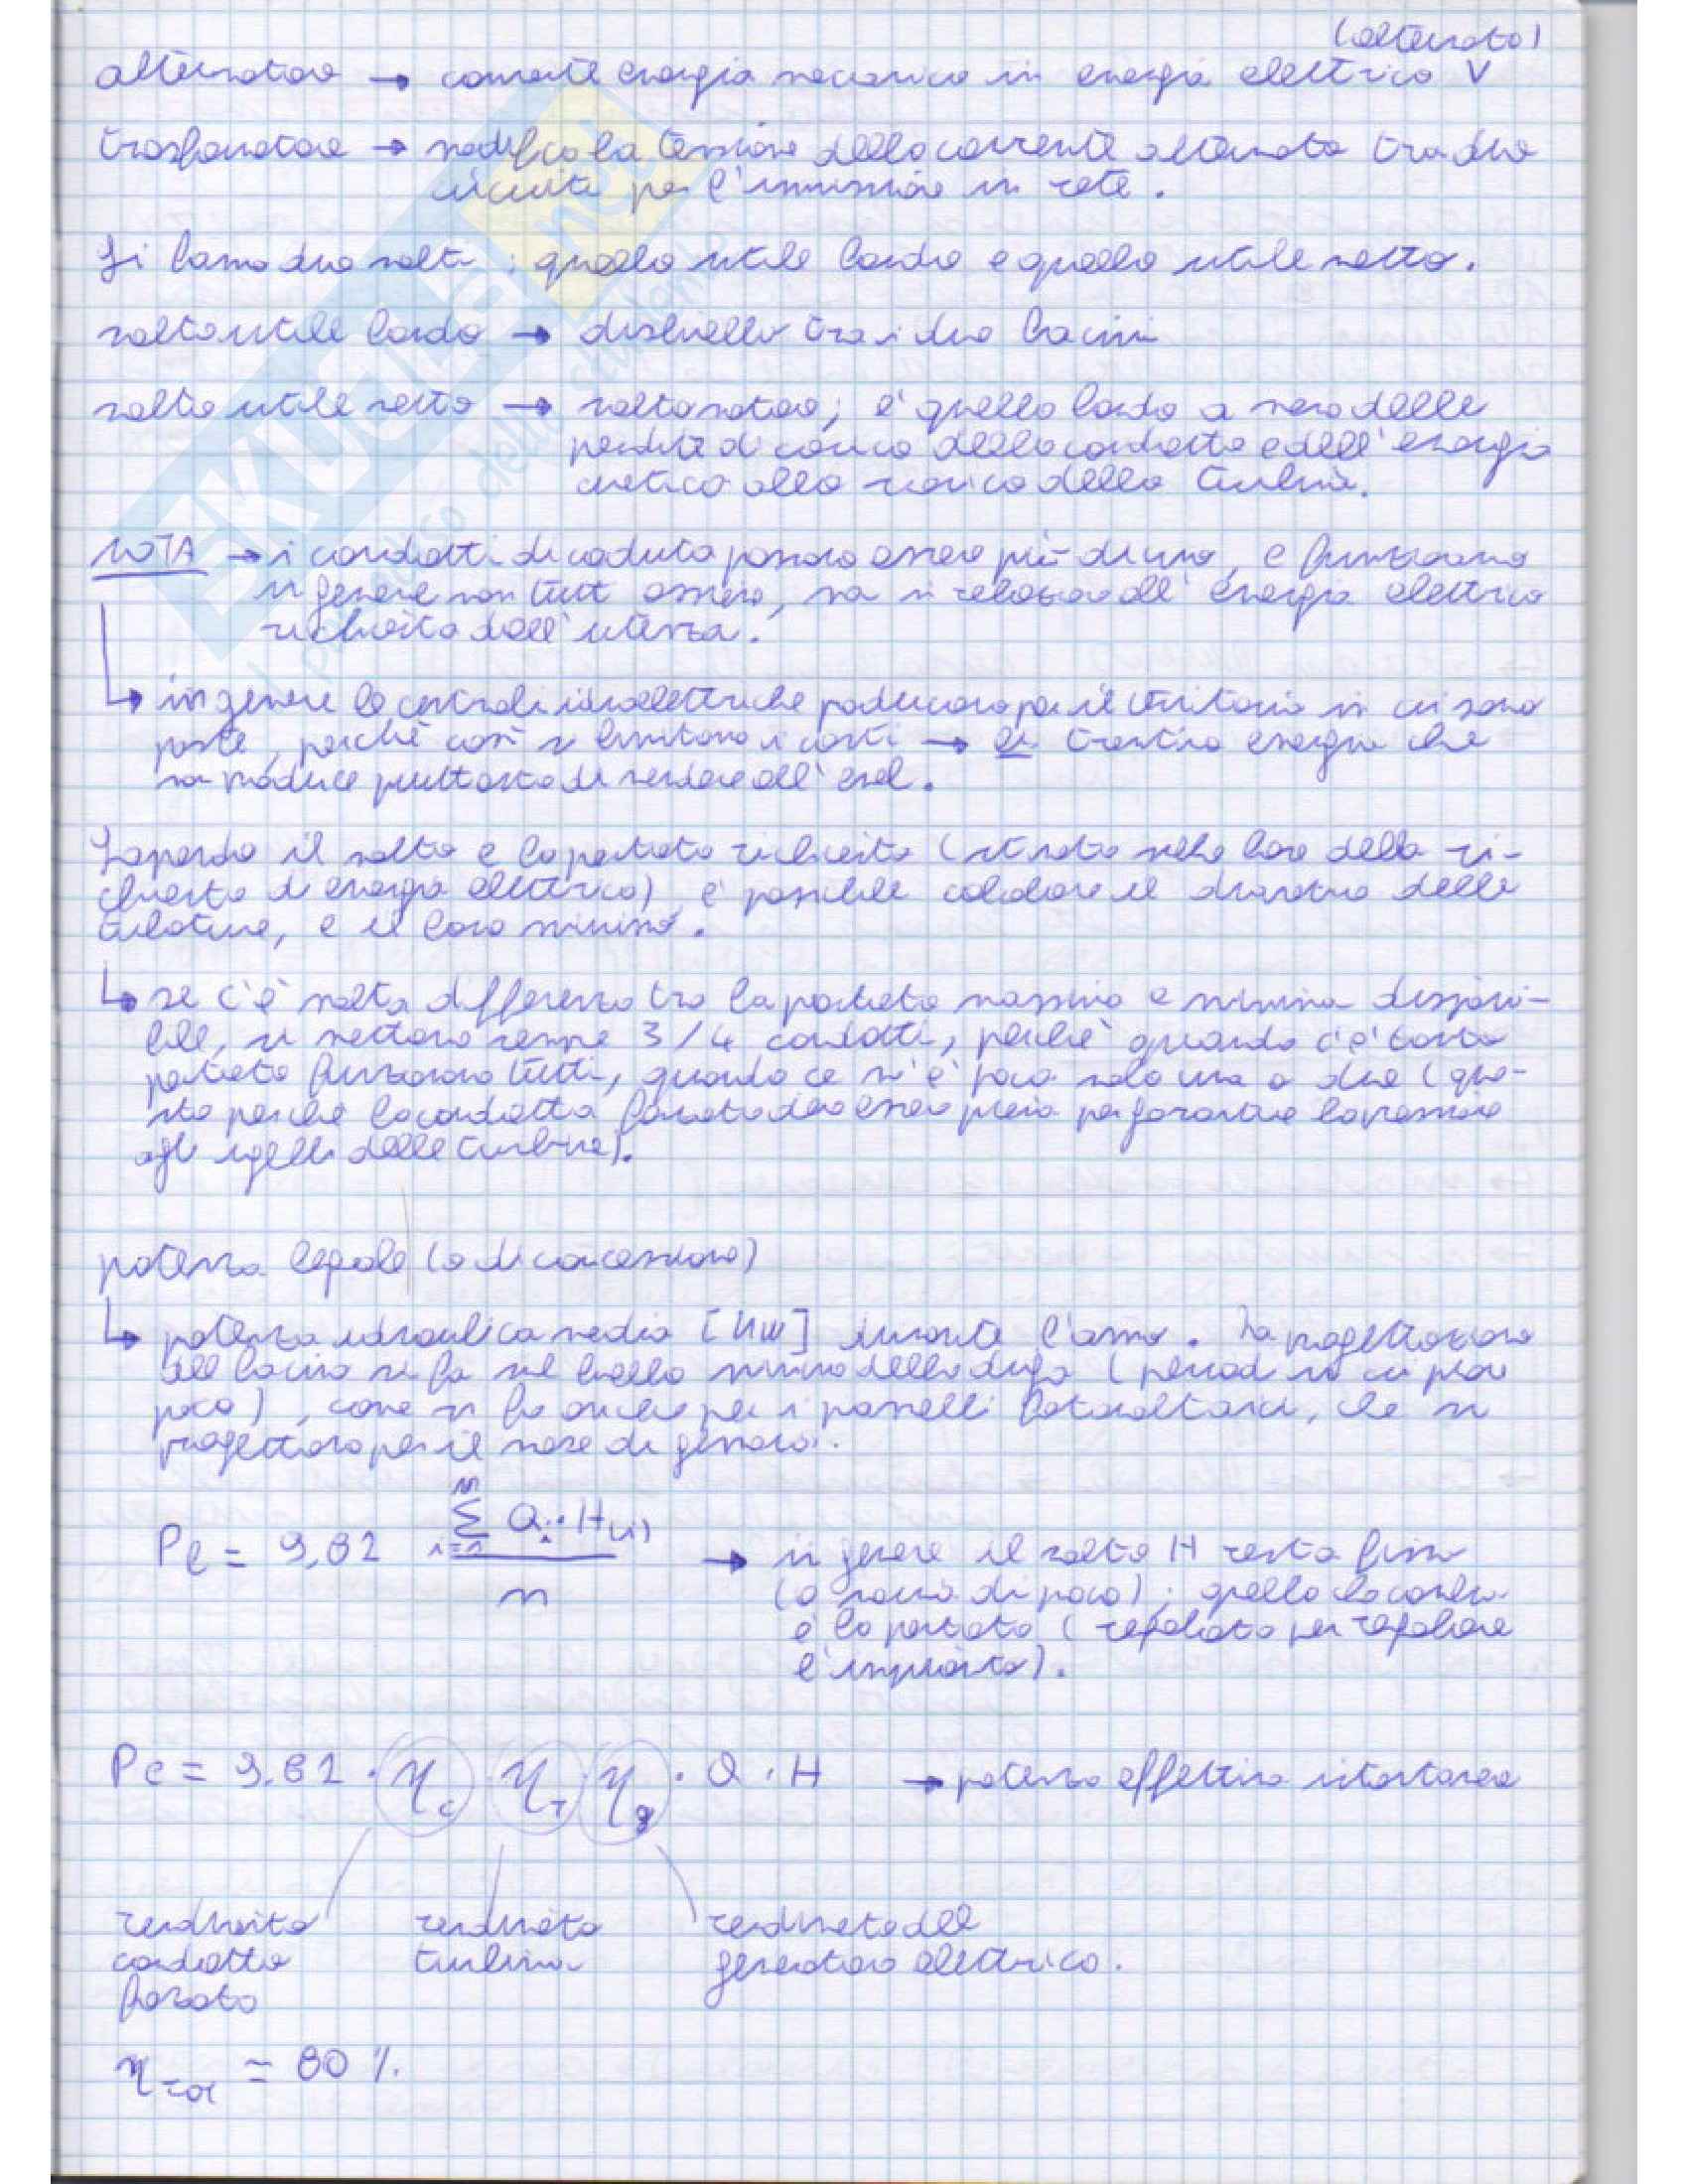 (alternata)
alternatore → converte energia meccanica in energia elettrica V
trasformatore → modifica la tensione della corrente alternata tra due
circuiti per l'immissione in rete.
Si hanno due salti: quello utile lordo e quello utile netto.
salto utile lordo → dislivello tra i due bacini
salto utile netto → salto motore; è quello lordo a meno delle
perdite di carico della condotta e dell'energia
cinetica allo scarico della turbina.
NOTA → i condotti di caduta possono essere più di uno, e funzionano
in genere non tutti assieme, ma in relazione all'energia elettrica
richiesta dall'utenza.
↳ in genere le centrali idroelettriche producono per il territorio in cui sono
poste, perchè così si limitano i costi → es trentino energia che
produce piuttosto di vendere all'enel.
Sapendo il salto e la portata richiesta (stimata sulla base della ri-
chiesta di energia elettrica) è possibile calcolare il diametro delle
tubature, e il loro numero.
↳ se c'è molta differenza tra la portata massima e minima disponi-
bile, si mettono sempre 3/4 condotti, perchè quando c'è tanta
portata funzionano tutti, quando ce n'è poca solo una o due (que-
sto perchè la condotta forzata deve essere piena per garantire la pressione
agli ugelli delle turbine).
potenza legale (o di concessione)
↳ potenza idraulica media [kW] durante l'anno. La progettazione
del bacino si fa sul livello minimo della diga (periodi in cui piove
poco), come si fa anche per i pannelli fotovoltaici, che si
progettano per il mese di gennaio.
Pl = 9,81 n Σ i=1 Qi·H(i) / n → in genere il salto H resta fisso
(o varia di poco); quello che cambia
è la portata (regolata per regolare
l'impianto).
Pe = 9.81 · ηc ηT ηg · Q · H → potenza effettiva istantanea
rendimento rendimento rendimento del
condotta turbina generatore elettrico.
forzata
ηTOT ≃ 80 %.
EKUELA.net